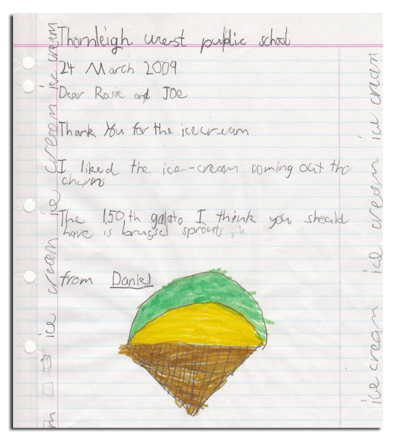 Thornleigh west public school
24 March 2009
Dear Rosie and Joe
Thank You for the icecream
I liked the ice-cream coming out the
churns
The 150th galato I think you should
have is brugiel sprouts
from Daniel
ice cream ice cream ice cream
ice cream ice cream ice cream